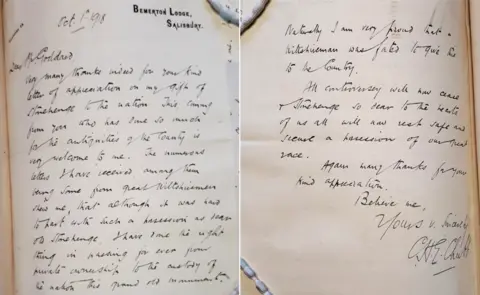 BEMERTON LODGE,
SALISBURY.
Oct. 1st 1918
Dear Mr Goddard
Very many thanks indeed for your kind
letter of appreciation on my gift of
Stonehenge to the nation. This coming
from you who has done so much
for the antiquities of the County is
very welcome to me. The numerous
letters I have received among them
being some from great Wiltshiremen
show me, that although it was hard
to part with such a possession as dear
old Stonehenge, I have done the right
thing in passing for ever from
private ownership to the custody of
the nation this grand old monument.
Naturally I am very proud that a
Wiltshireman was fated to give this
to the Country.
All controversy will now cease
& Stonehenge so dear to the hearts
of us all will now rest safe and
secure a possession of our great
race.
Again many thanks for your
kind appreciation.
Believe me,
Yours v. sincerely
C.H.E. Chubb